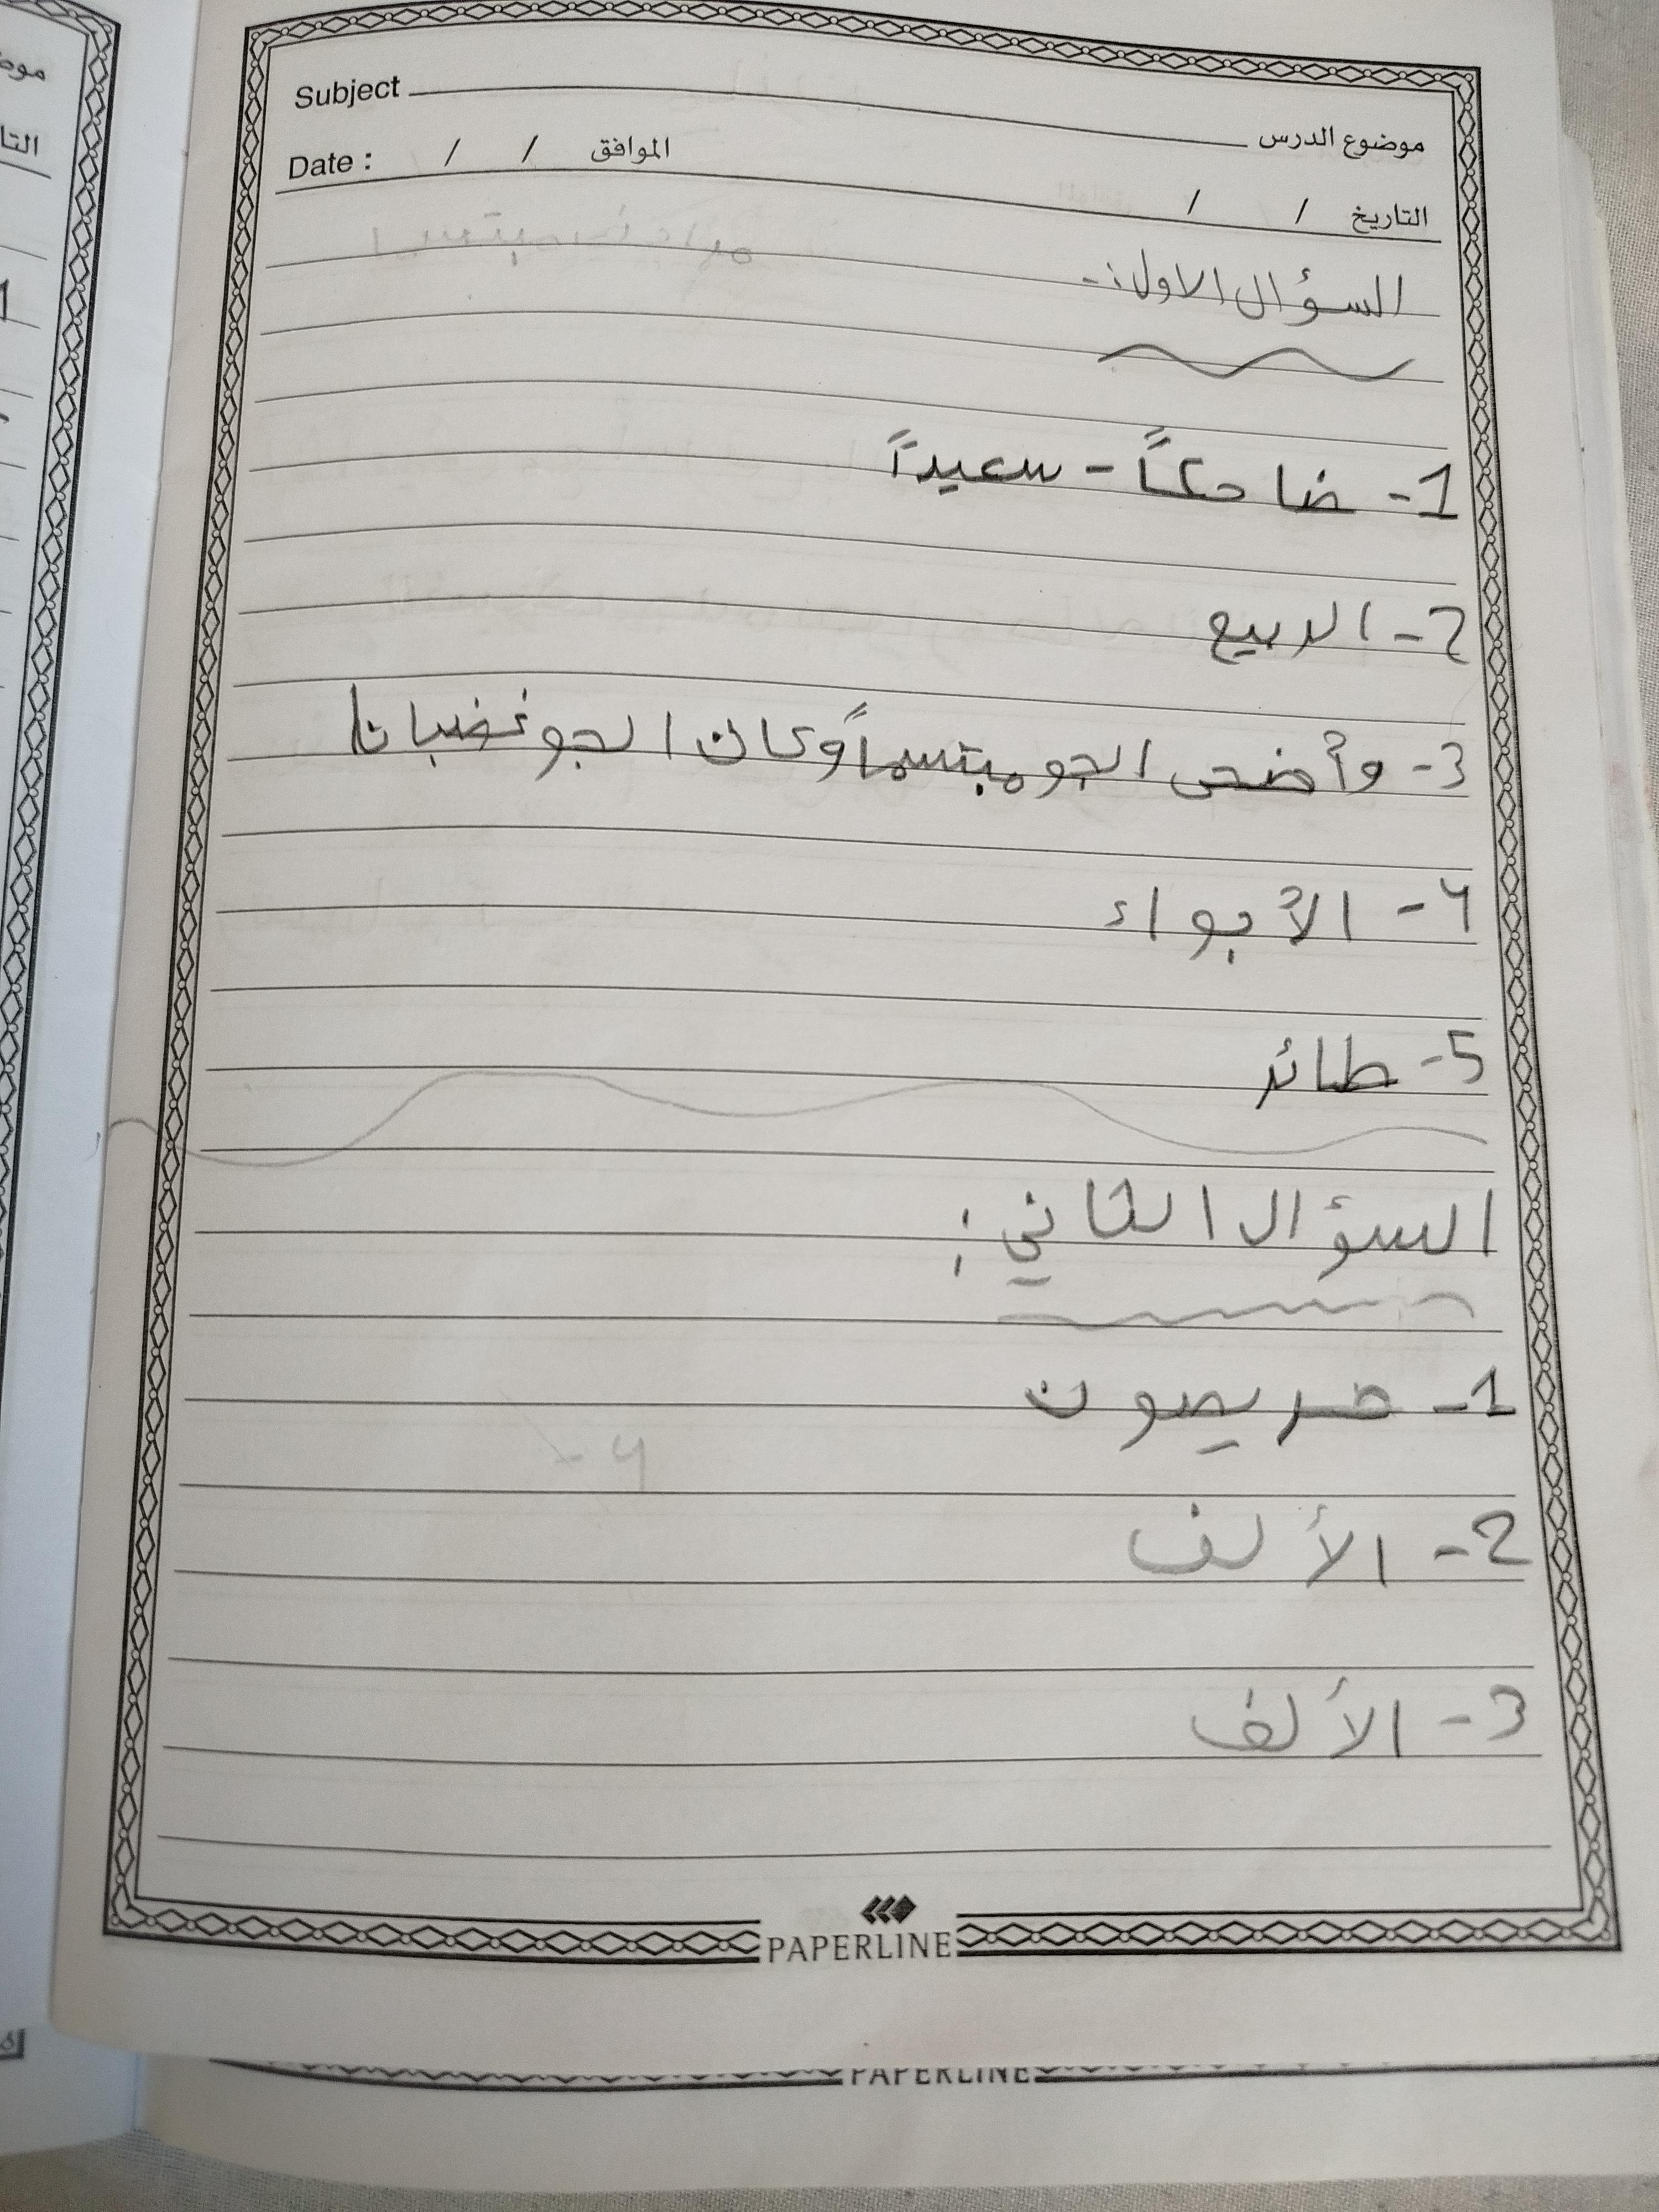 Subject موضوع الدرس
Date : / / الموافق التاريخ / /
السؤال الاول :-
1- ضاحكاً - سعيداً
2- الربيع
3- وأضحى الجو مبتسماً وكان الجو غضبانا
4- الأبواء
5- طائر
السؤال الثاني :
1- حريصون
2- الألف
3- الألف
PAPERLINE
PAPERLINE